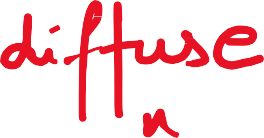 diffuse
n